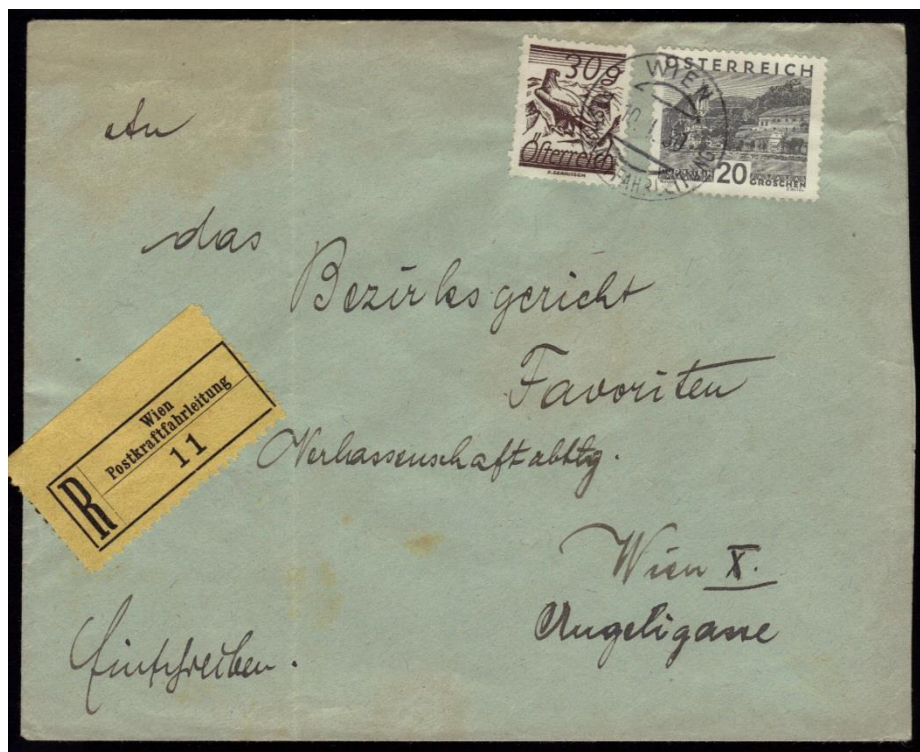 30g
Österreich
ÖSTERREICH
20
GROSCHEN
WIEN
An
das
Bezirksgericht
Favoriten
Verlassenschaftabtlg.
Wien X.
Angeligasse
Wien
Postkraftfahrleitung
11
R
Einschreiben.